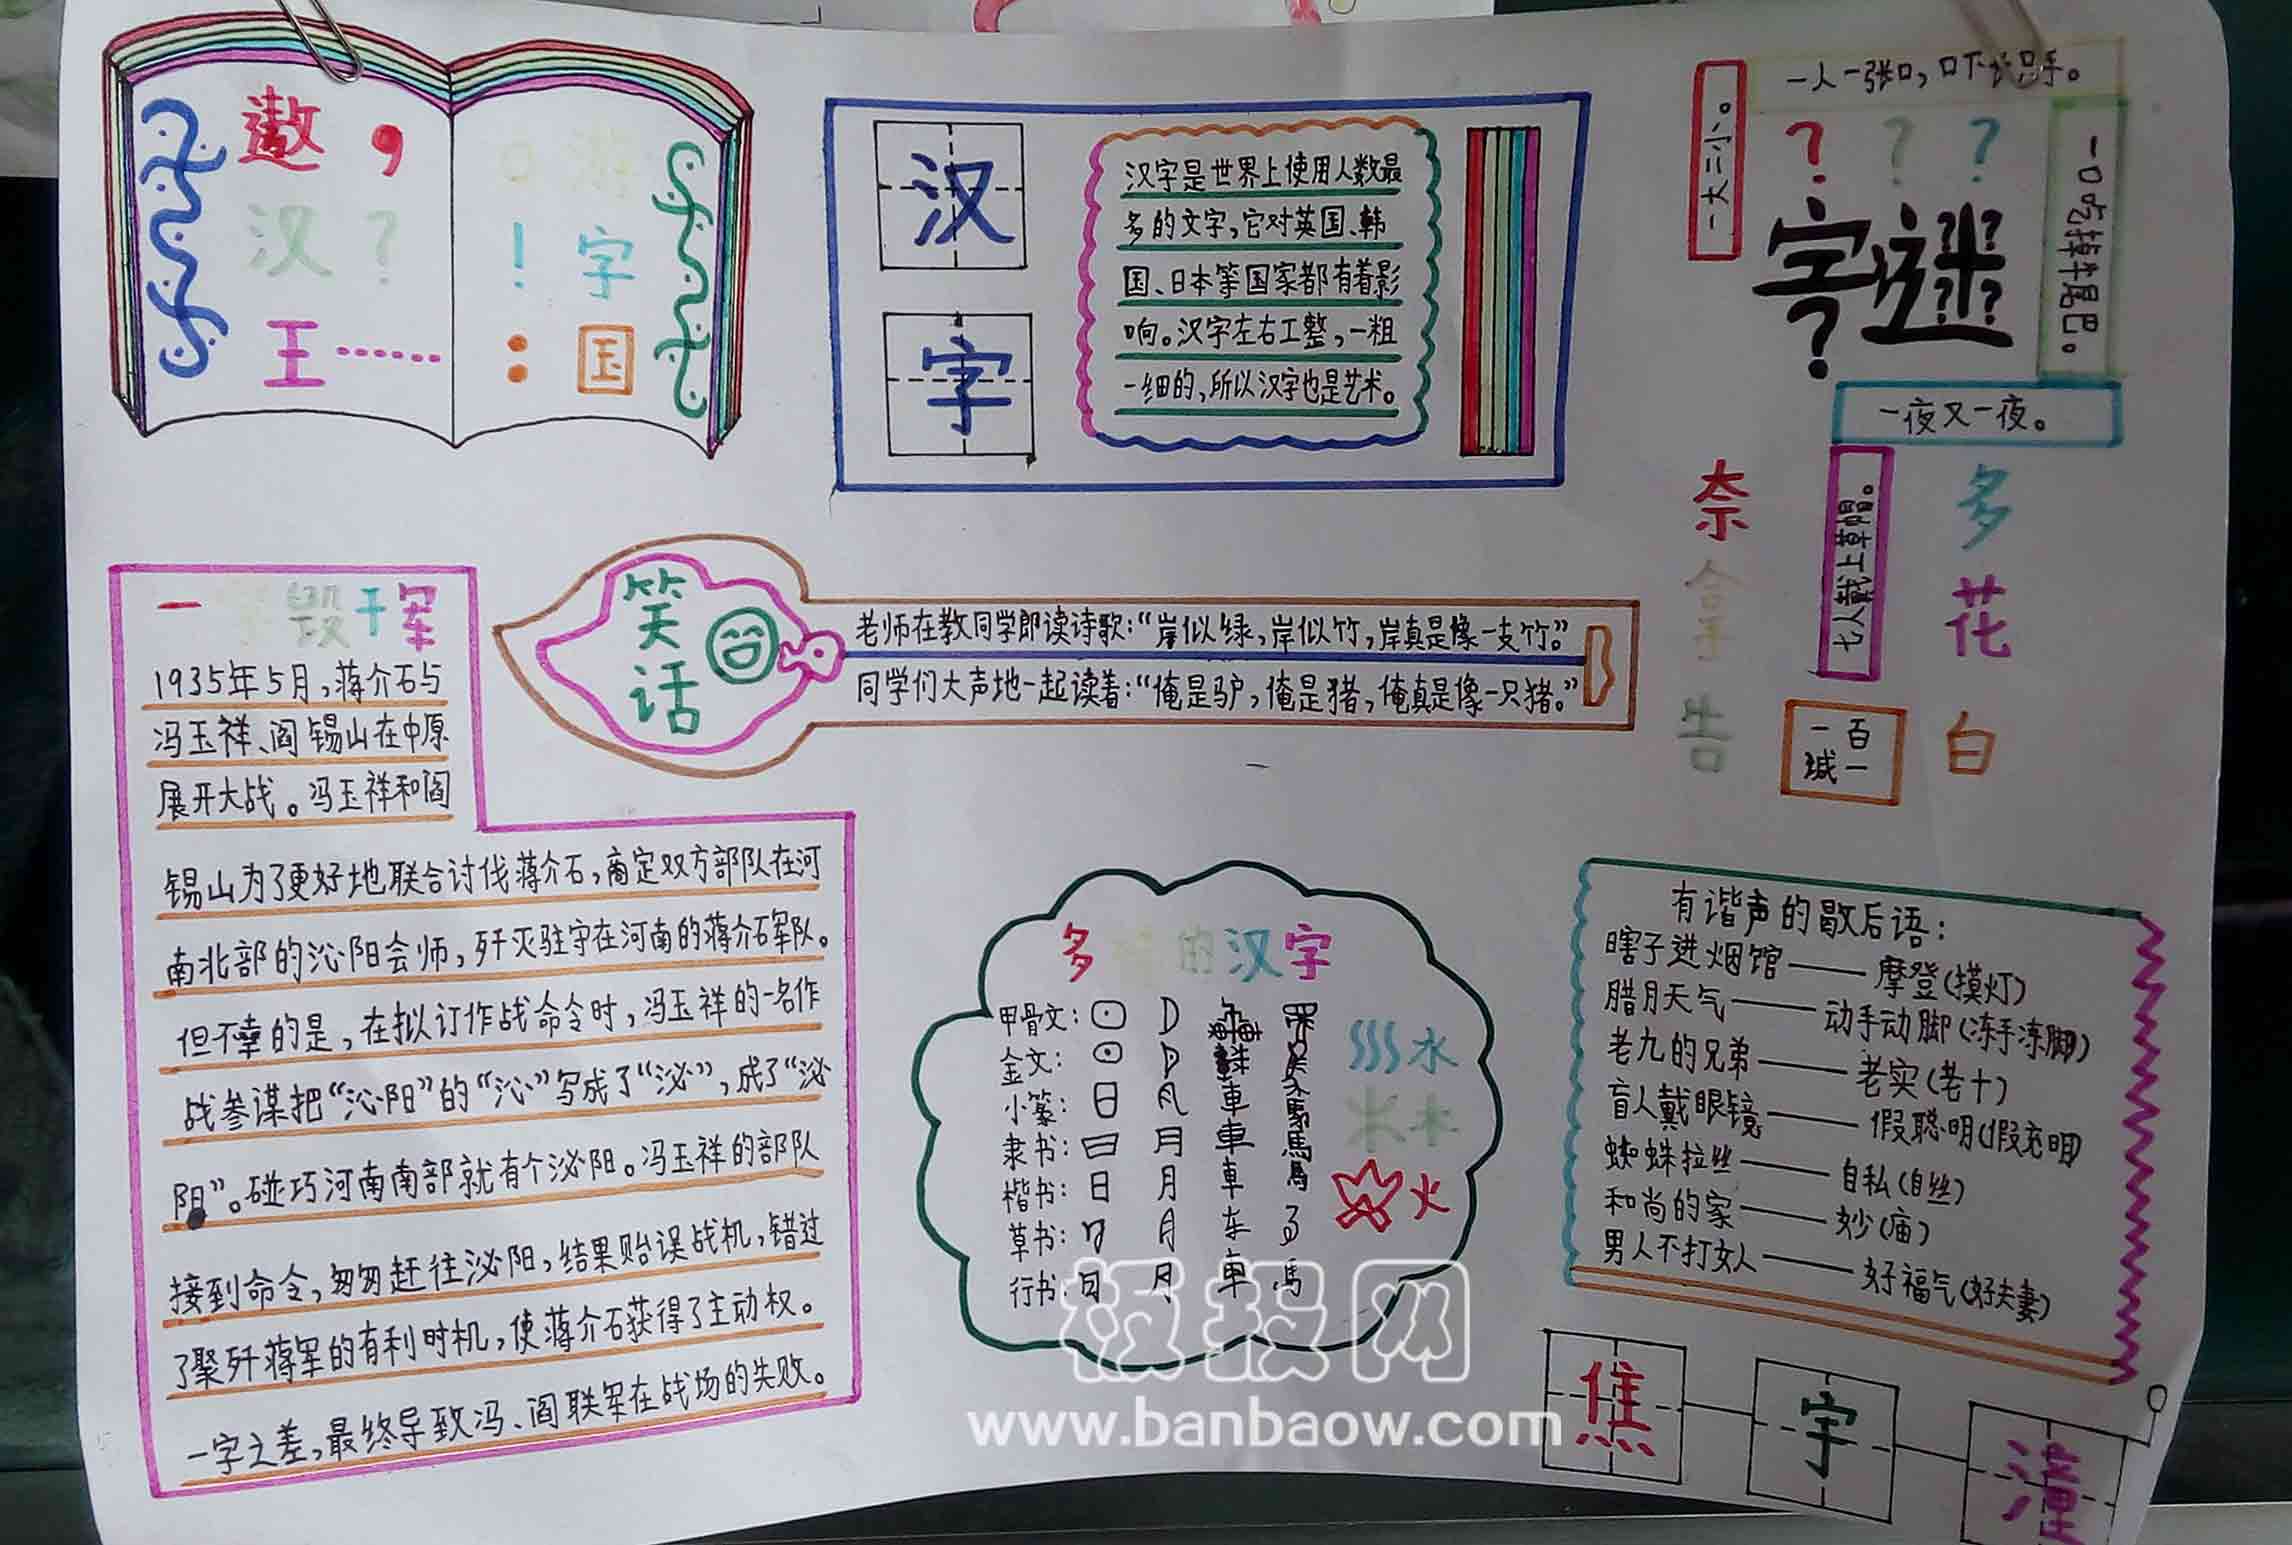 遨，
汉？
王……
。游
！字
：国
汉
字
汉字是世界上使用人数最
多的文字，它对英国、韩
国、日本等国家都有着影
响。汉字左右工整，一粗
一细的，所以汉字也是艺术。
一大三小。
一人一张口，口下长只手。
？？？
字谜
一口吃掉牛尾巴。
一夜又一夜。
七人戴上草帽。
奈
拿
告
多
花
白
一百
减一
笑话
老师在教同学郎读诗歌：“岸似绿，岸似竹，岸真是像一支竹。”
同学们大声地一起读着：“俺是驴，俺是猪，俺真是像一只猪。”
一字毁千军
1935年5月，蒋介石与
冯玉祥、阎锡山在中原
展开大战。冯玉祥和阎
锡山为了更好地联合讨伐蒋介石，商定双方部队在河
南北部的沁阳会师，歼灭驻守在河南的蒋介石军队。
但不幸的是，在拟订作战命令时，冯玉祥的一名作
战参谋把“沁阳”的“沁”写成了“泌”，成了“泌
阳”。碰巧河南南部就有个泌阳。冯玉祥的部队
接到命令，匆匆赶往泌阳，结果贻误战机，错过
了聚歼蒋军的有利时机，使蒋介石获得了主动权。
一字之差，最终导致冯、阎联军在战场的失败。
多样的汉字
甲骨文：
金文：
小篆：
隶书：日 月 車 馬
楷书：日 月 車 馬
草书：
行书：日 月 車 馬
水
木
火
有谐声的歇后语：
瞎子进烟馆——摩登（摸灯）
腊月天气——动手动脚（冻手冻脚）
老九的兄弟——老实（老十）
盲人戴眼镜——假聪明（假充明）
蜘蛛拉丝——自私（自丝）
和尚的家——妙（庙）
男人不打女人——好福气（好夫妻）
焦
宇
潼
板报网
www.banbaow.com